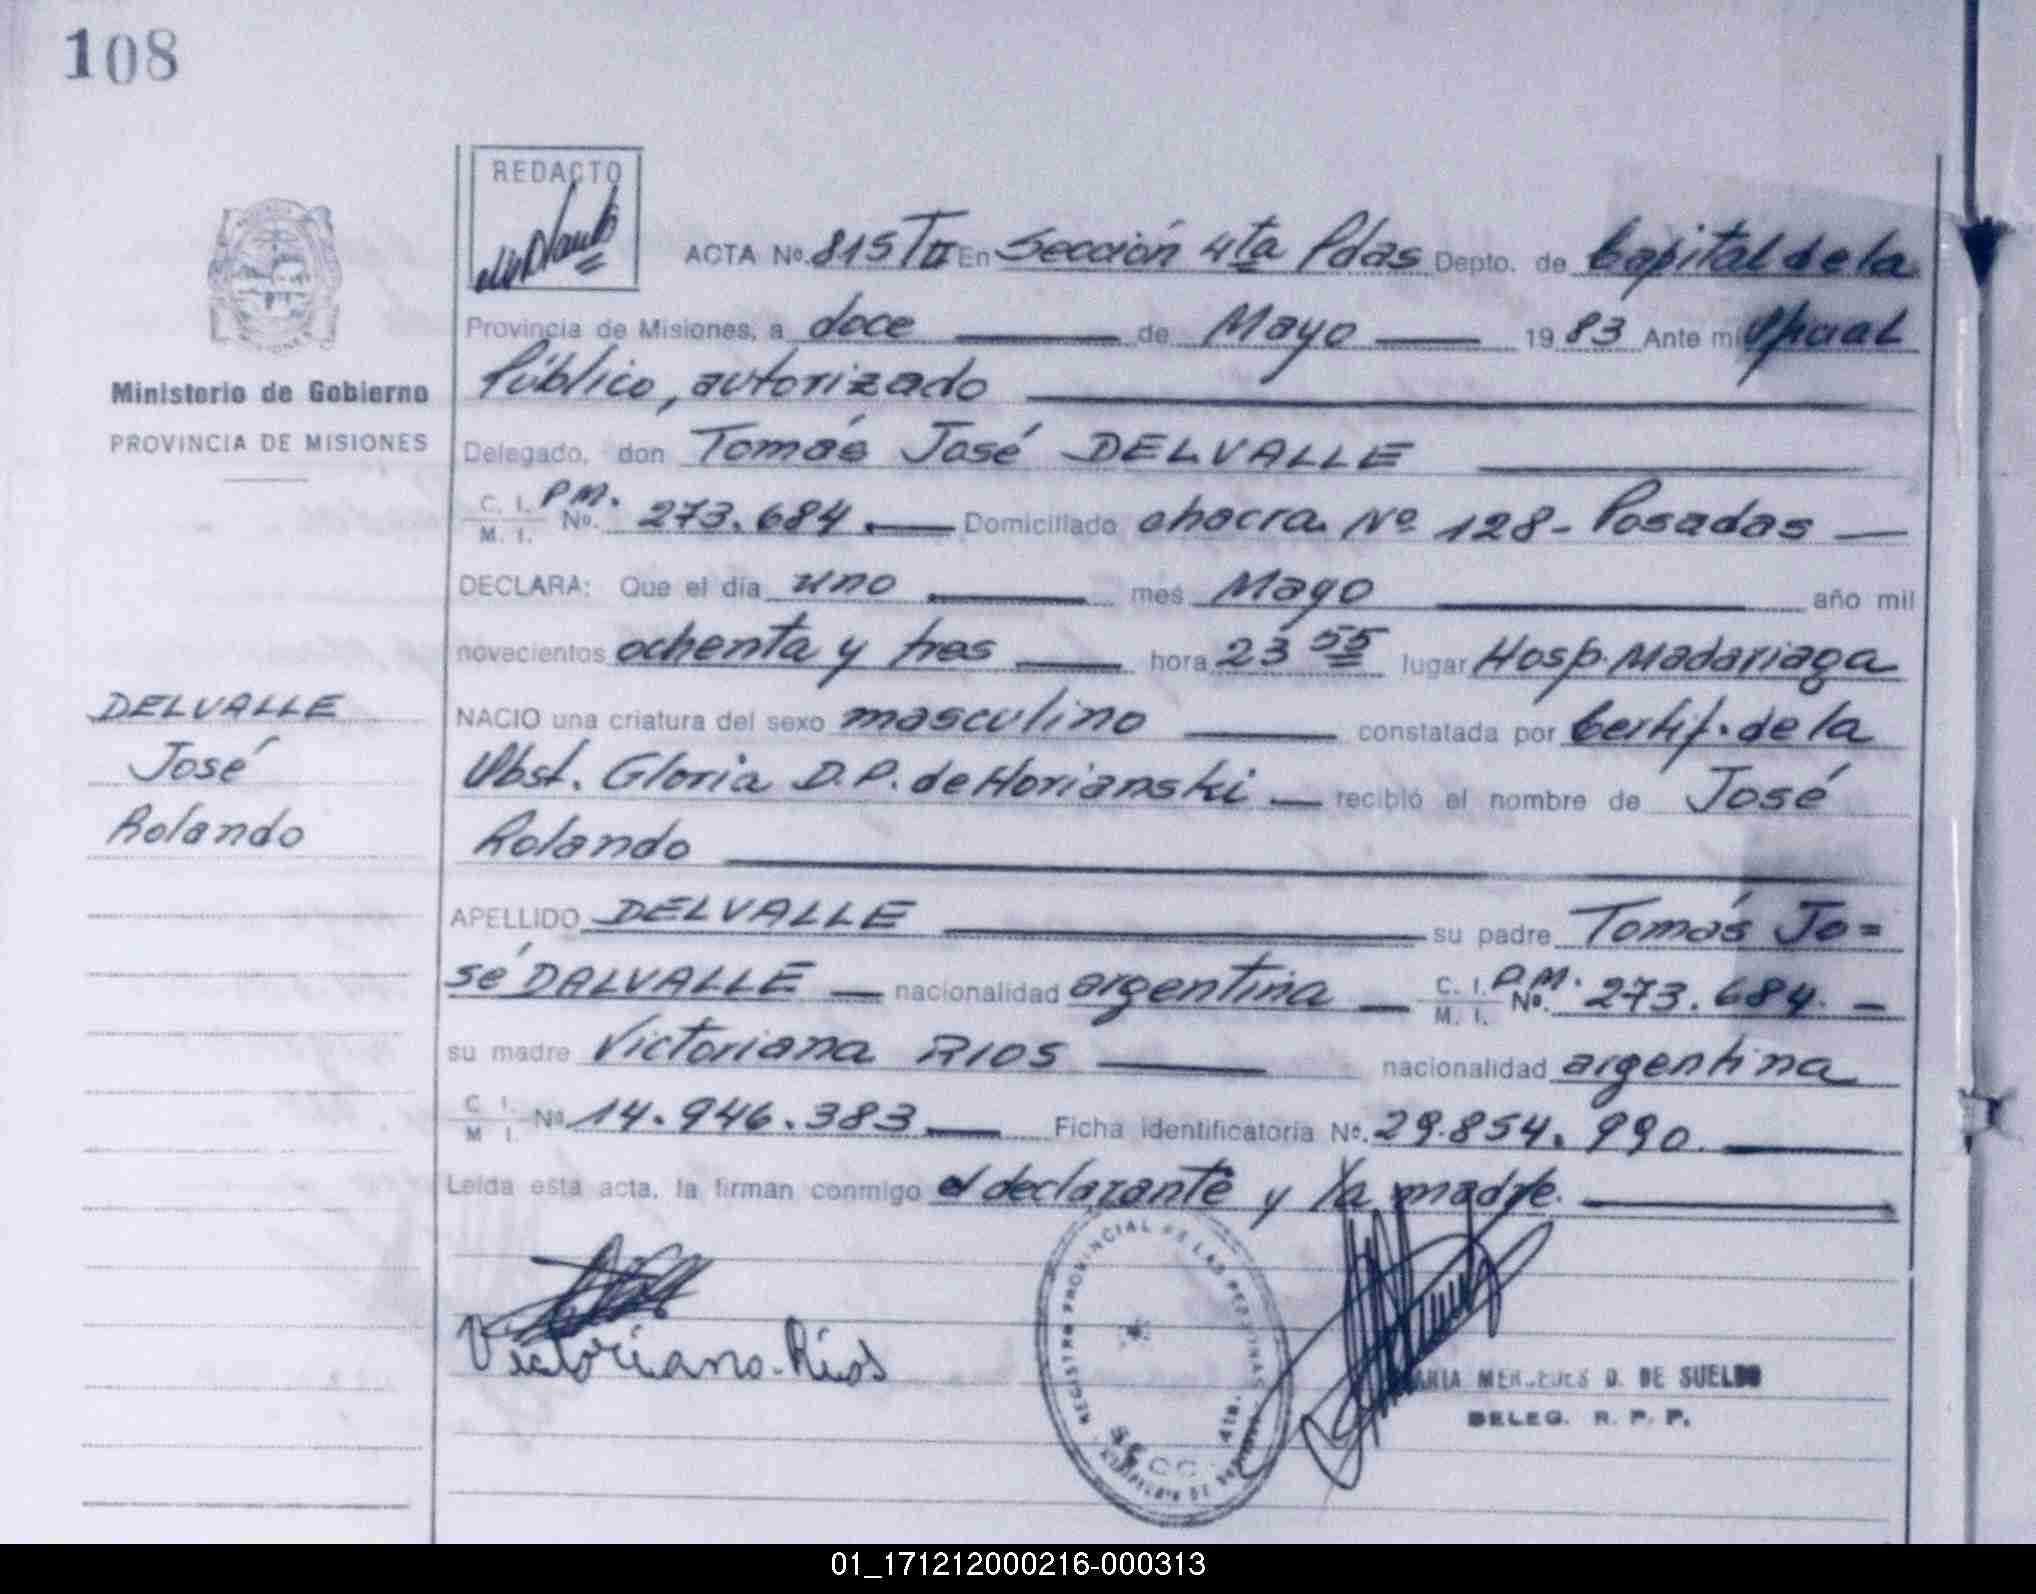 108
REDACTO
ACTA Nº 815 TII En Sección 4ta Pdas Depto. de Capital de la
Provincia de Misiones, a doce de Mayo 1983 Ante mi Oficial
Público, autorizado
Ministerio de Gobierno
PROVINCIA DE MISIONES
Delegado, don Tomás José DELVALLE
C. I. M. I. P.M. Nº. 273.684. Domiciliado chacra Nº 128- Posadas
DECLARA: Que el día uno mes Mayo año mil
novecientos ochenta y tres hora 23 55 lugar Hosp. Madariaga
DELVALLE
José
Rolando
NACIO una criatura del sexo masculino constatada por Certif. de la
Obst. Gloria D.P. de Horianski recibió el nombre de José
Rolando
APELLIDO DELVALLE su padre Tomás Jo=
sé DALVALLE nacionalidad argentina C. I. M. I. P.M. Nº. 273.684.
su madre Victoriana RIOS nacionalidad argentina
C. I. M. I. Nº 14.946.383 Ficha identificatoria Nº. 29.854.990
Leída esta acta, la firman conmigo el declarante y la madre.
Victoriana Ríos
REGISTRO PROVINCIAL DE LAS PERSONAS
SECC. 4ta.
MARIA MERCEDES D. DE SUELDO
DELEG. R. P. P.
01_171212000216-000313